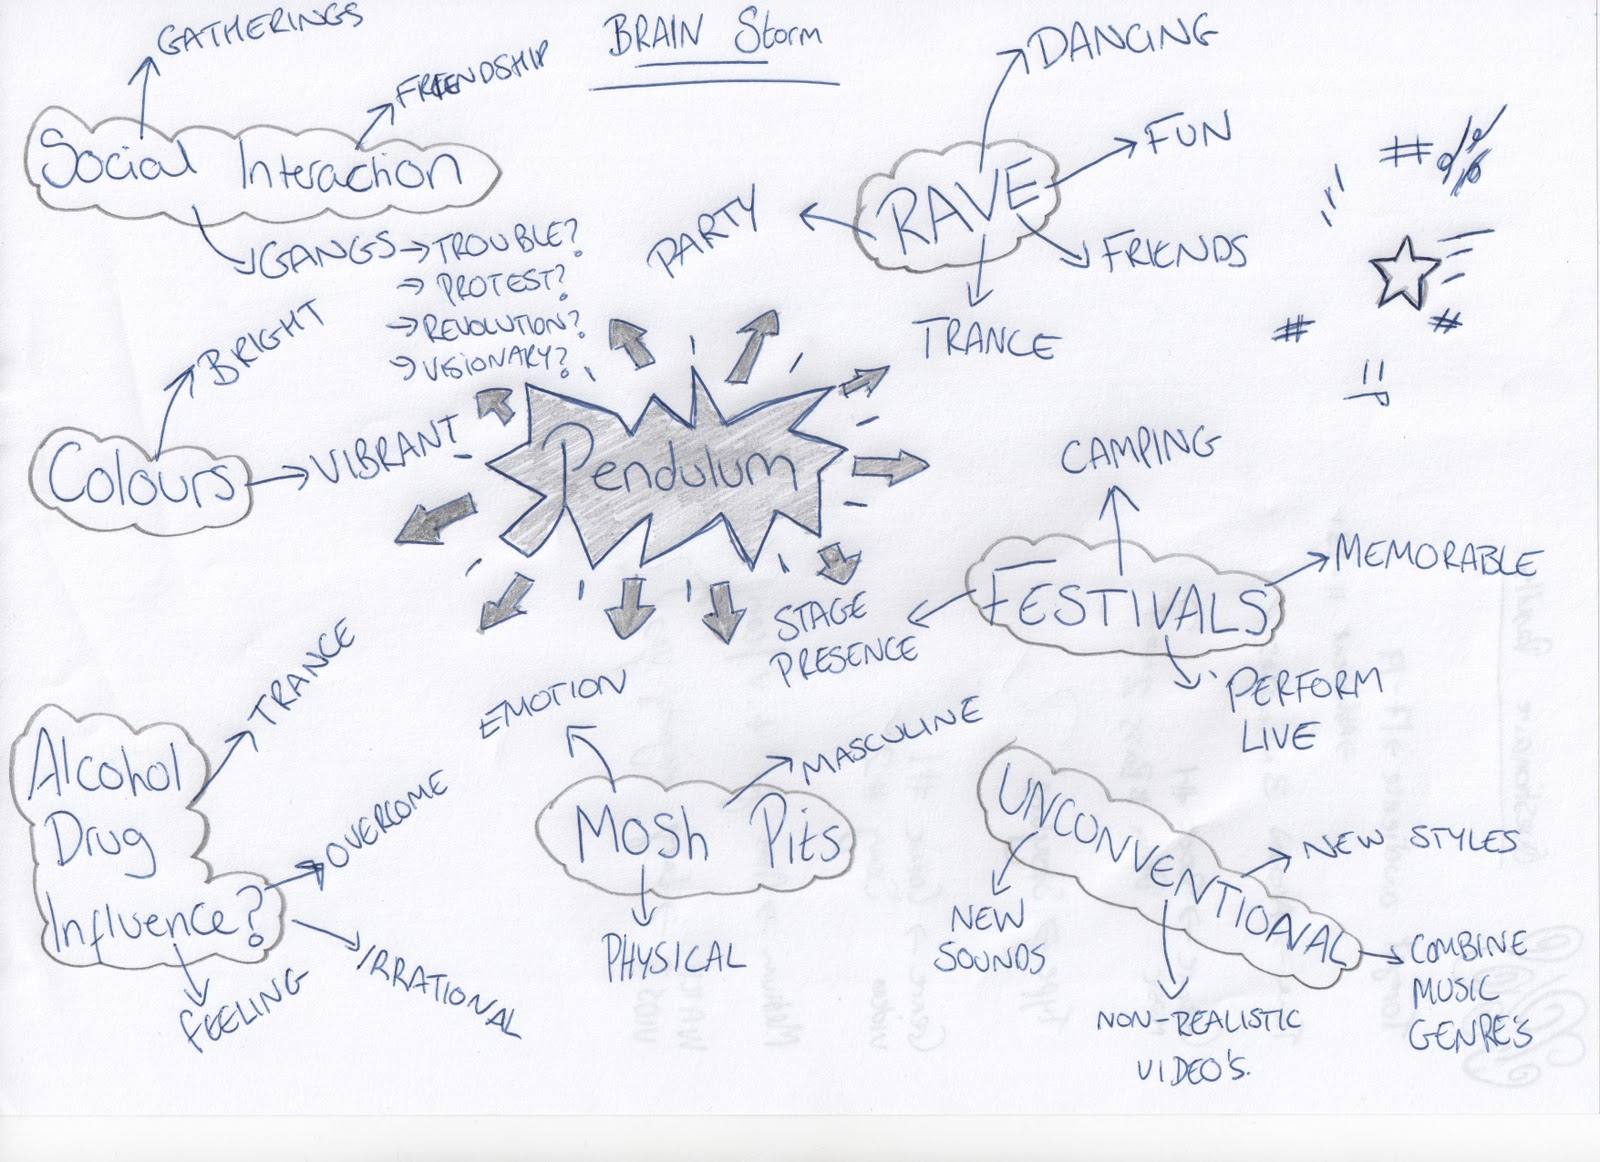 BRAIN Storm
GATHERINGS
FRIENDSHIP
Social Interaction
GANGS → TROUBLE?
→ PROTEST?
→ REVOLUTION?
→ VISIONARY?
DANCING
FUN
RAVE
PARTY
FRIENDS
TRANCE
#
#
#
BRIGHT
Colours
VIBRANT
Pendulum
CAMPING
MEMORABLE
FESTIVALS
STAGE
PRESENCE
PERFORM
LIVE
TRANCE
Alcohol
Drug
Influence?
OVERCOME
IRRATIONAL
FEELING
EMOTION
MASCULINE
MOSH PitS
PHYSICAL
UNCONVENTIONAL
NEW STYLES
NEW
SOUNDS
NON-REALISTIC
VIDEO'S.
COMBINE
MUSIC
GENRE'S